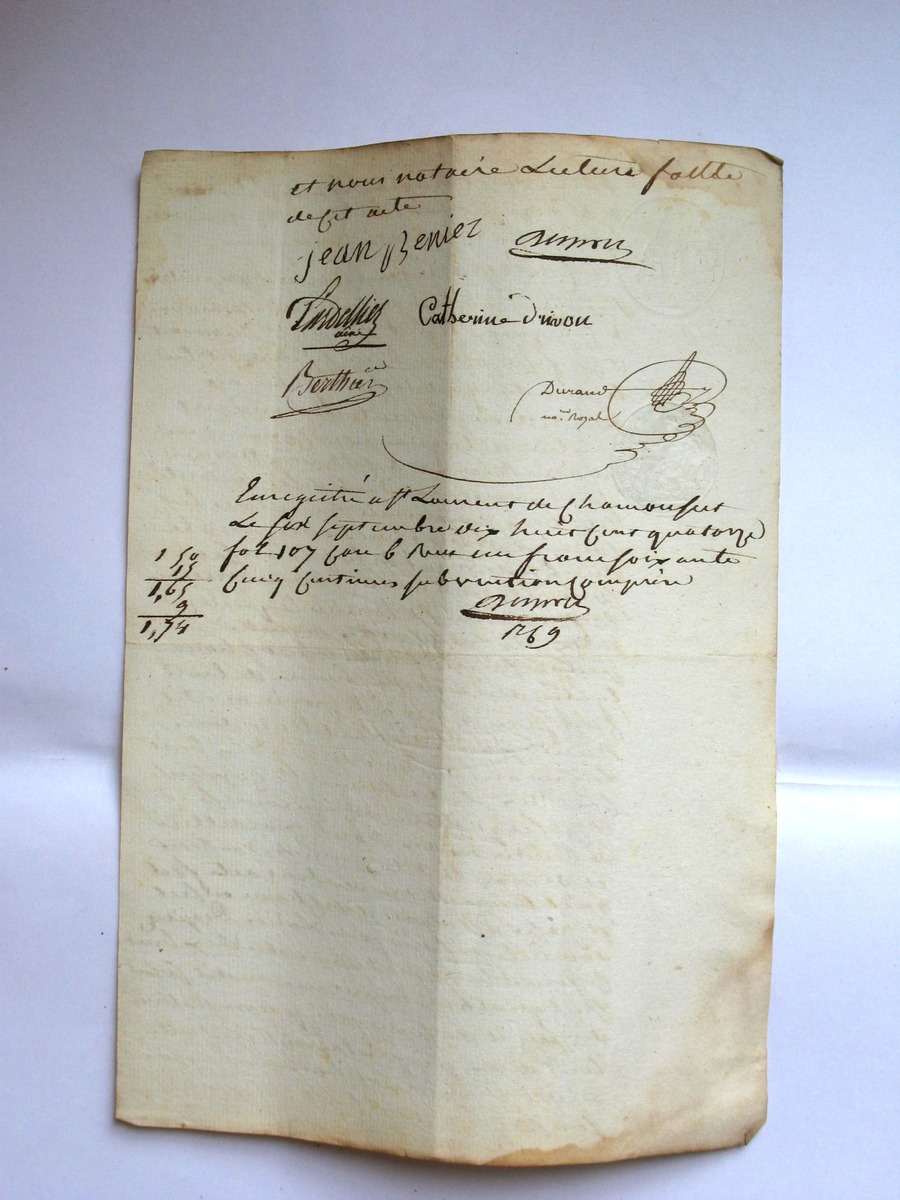 et nous notaire Lecture faitte
de cet acte
jean Benier
Catherine Drivon
Berthier
Durand
no.re Royal
Enregistré a st Laurent de Chamousset
Le six septembre dix huit cent quatorze
fol 107 Case 6 Recu un franc soixante
Cinq Centimes subvention Comprise
1 50
15
1,65
9
1,74
1269